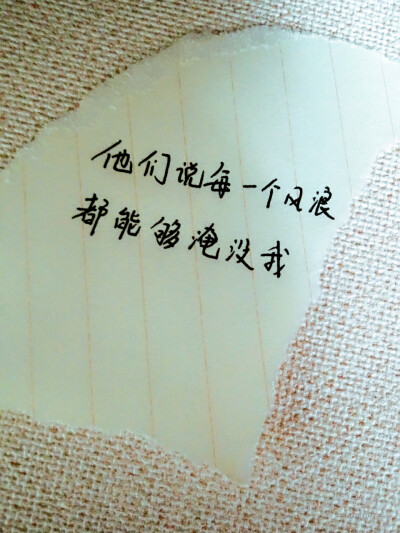 他们说每一个风浪
都能够淹没我